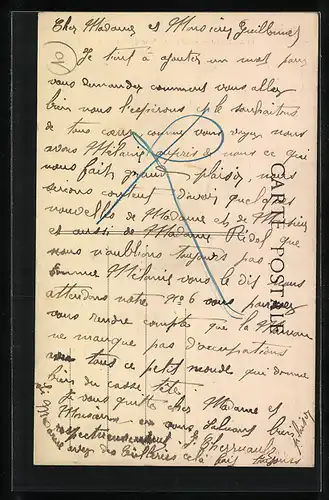 Cher Madame et Monsieur Guilbines
Je tiens à ajouter un mot pour
vous demander comment vous allez
bien nous l'espérons et le souhaitons
de tous cœur comme vous voyez nous
avons Mélanie auprès de nous ce qui
nous fait grand plaisir, nous
serons content d'avoir quelques
nouvelles de Madame et de Monsieur
et aussi de Madame Ridel que
nous n'aublions toujours pas
comme Mélanie vous le dit nous
attendons notre No 6 vous pouvez
vous rendre compte que la Maman
ne manque pas d'occupations
avec tous ce petit monde qui donne
bien du casse tête.
Je vous quitte cher Madame et
Monsieur en vous saluant bien
respectueusement
Madame
avez des cela fait toujours
plaisir
CARTE POSTALE